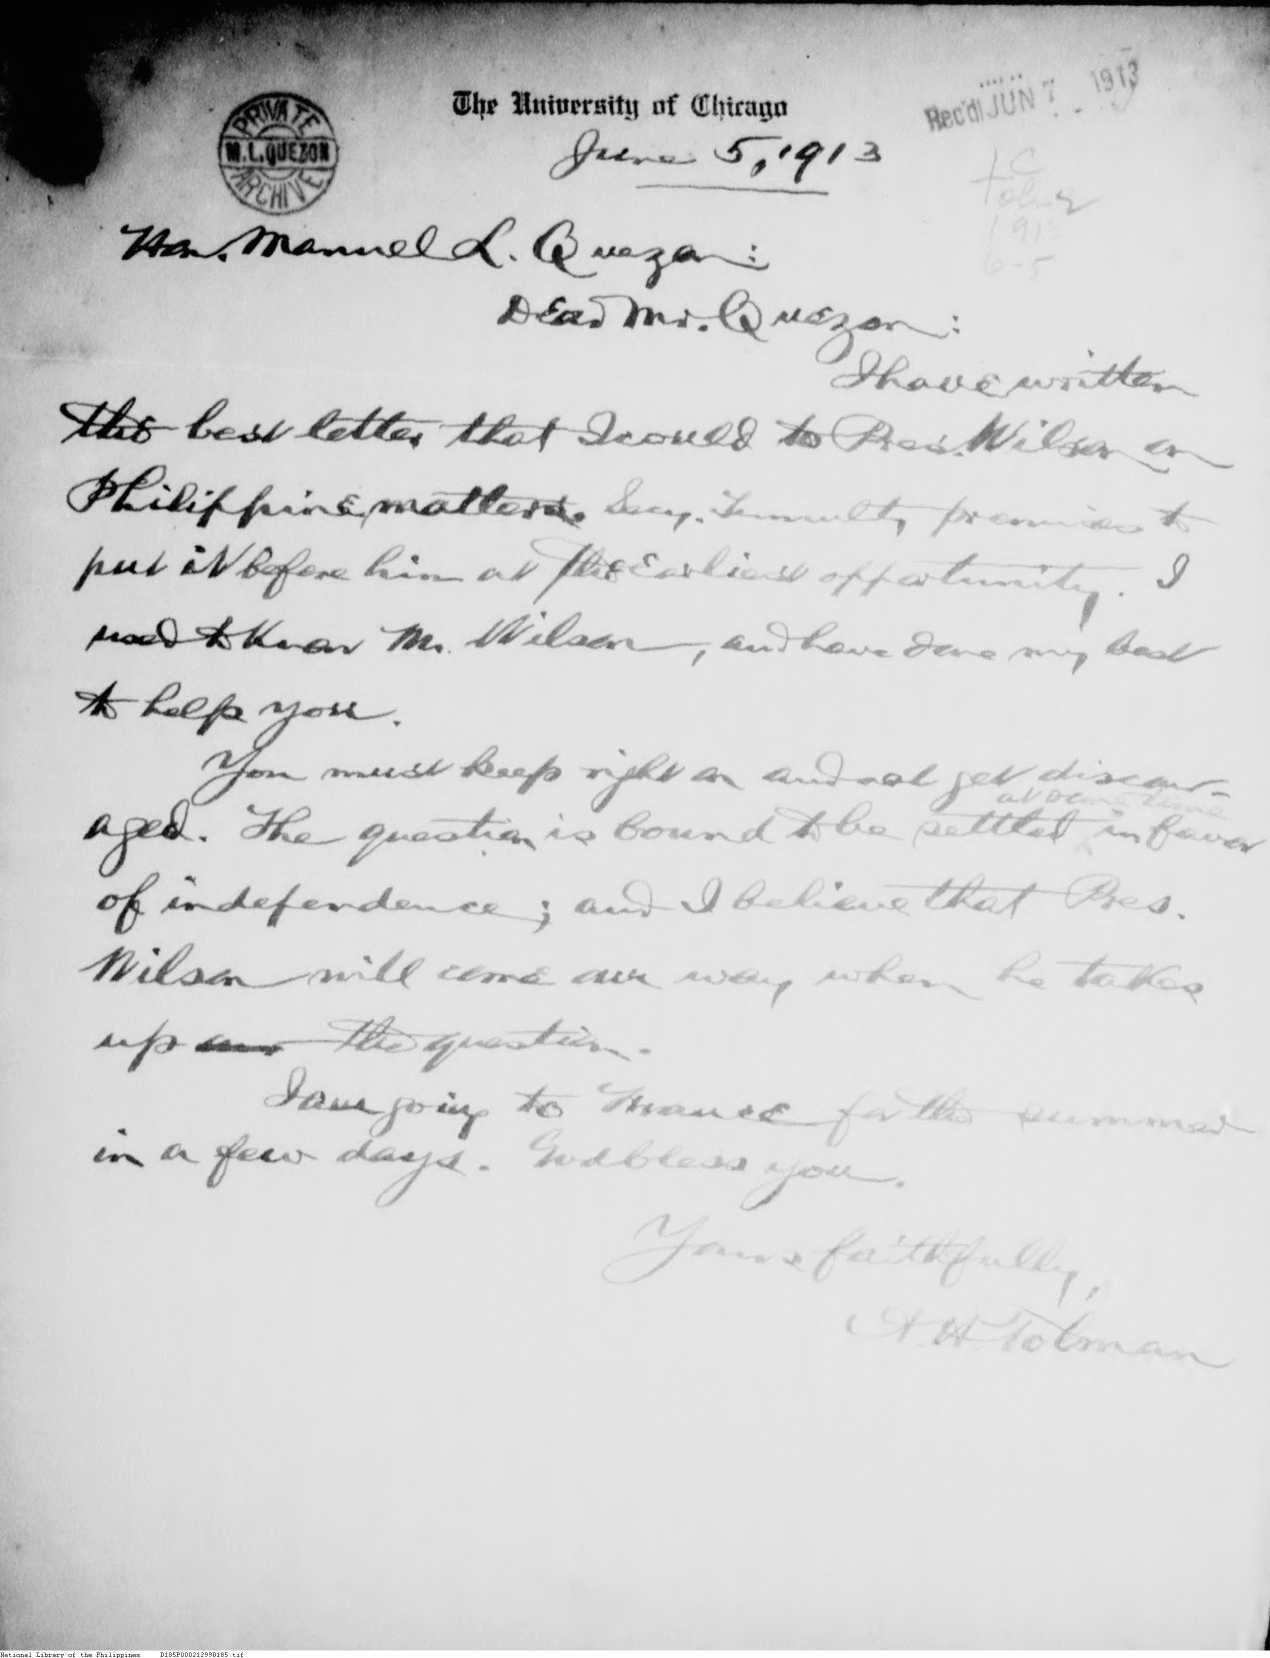 The University of Chicago
Rec'd JUN 7 1913
PRIVATE
M. L. QUEZON
ARCHIVE
June 5, 1913
Hon. Manuel L. Quezon:
Dear Mr. Quezon:
I have written
the best letter that I could to Pres. Wilson on
Philippine matters. Secy. Tumulty promises to
put it before him at the earliest opportunity. I
used to know Mr. Wilson, and have done my best
to help you.
You must keep right on and not get discour-
at some time
aged. The question is bound to be settled in favor
of independence; and I believe that Pres.
Wilson will come our way when he takes
up the question.
I am going to France for the summer
in a few days. God bless you.
Yours faithfully,
A. H. Tolman
National Library of the Philippines D185P000212990185.tif